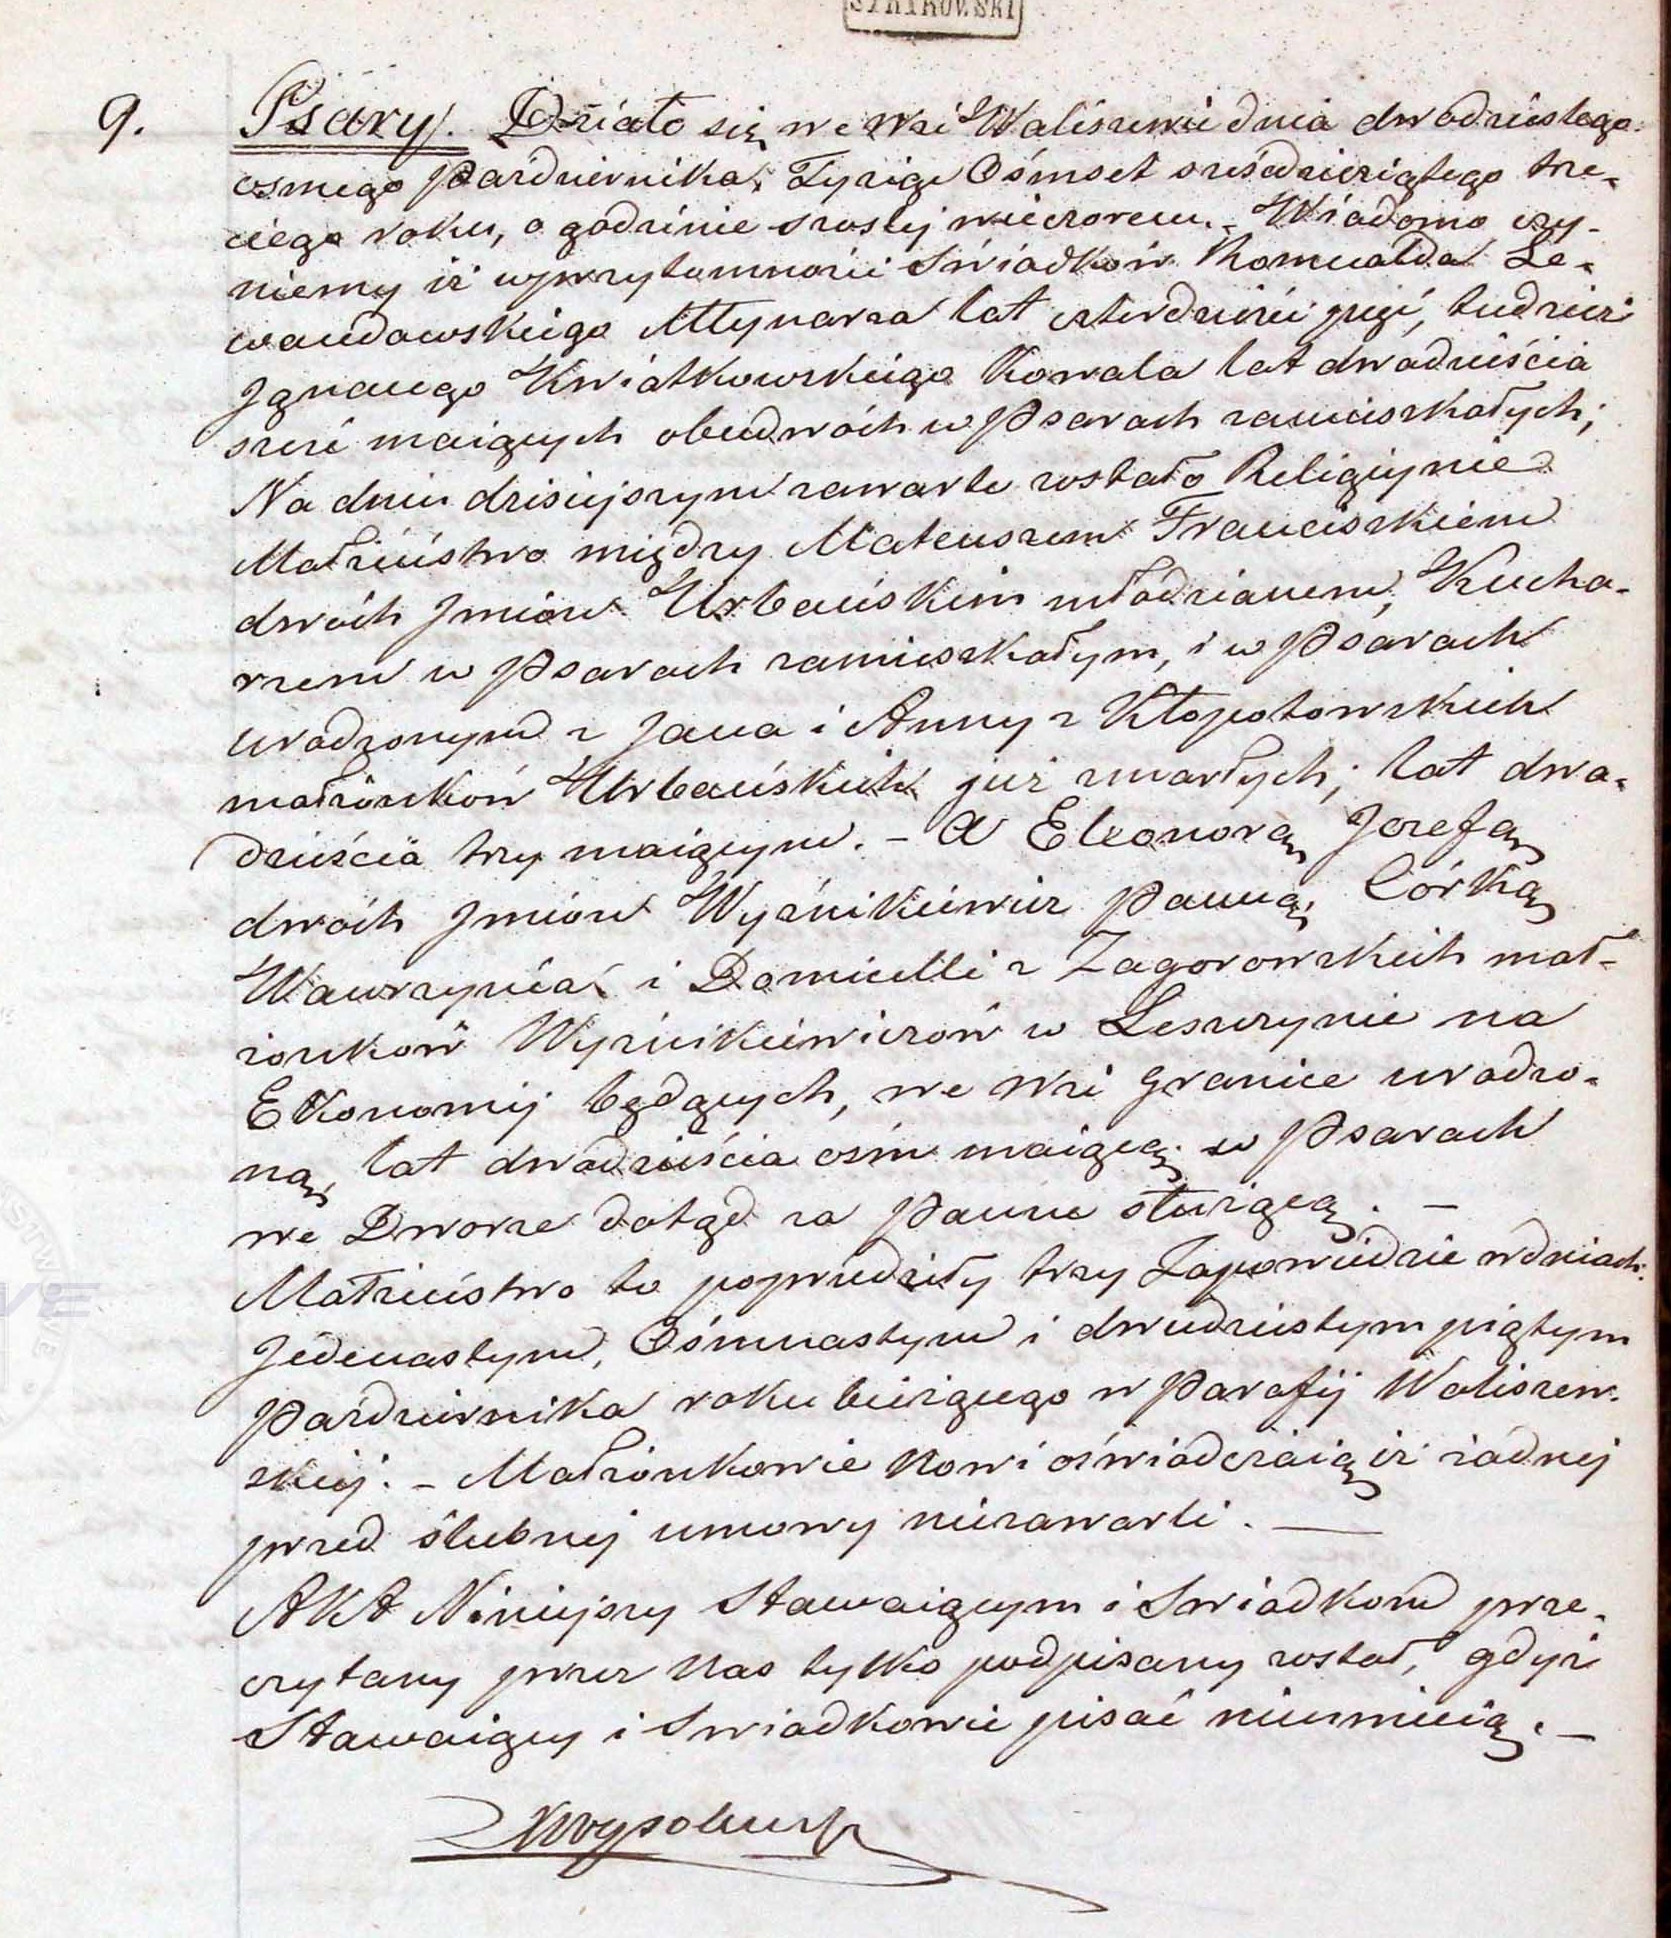 STRYKOWSKI
9. Psary. Działo się we Wsi Waliszewie dnia dwudziestego
osmego Października, Tysiąc Ośmset sześdziesiątego trze-
ciego roku, o godzinie szostej wieczorem. - Wiadomo czy-
niemy iż wprzytomności Świadków Romualda Le-
wandowskiego Młynarza lat czterdzieści pięć, tudzież
Ignacego Kwiatkowskiego Kowala lat dwadzieścia
sześć maiących obudwóch w Psarach zamieszkałych;
Na dniu dzisiejszym zawarte zostało Religiynie
Małżeństwo między Mateuszem Franciszkiem
dwóch Imion Urbańskim młodzianem, Kucha-
rzem w Psarach zamieszkałym, i w Psarach
urodzonym z Jana i Anny z Kłopotowskich
małżonków Urbańskich już zmarłych; lat dwa-
dzieścia trzy maiącym. - A Eleonorą Jozefą
dwóch Imion Wyźnikiewicz Panną, Córką
Wawrzyńca i Domicelli z Zagorowskich mał-
żonków Wyźnikiewiczów w Leszczynie na
Ekonomij będących, we Wsi Granice urodzo-
ną, lat dwadzieścia ośm maiącą, w Psarach
we Dworze dotąd za Pannę służącą. -
Małżeństwo to poprzedziły trzy Zapowiedzie wdniach:
Jedenastym, Ośmnastym i dwudziestym piątym
Października roku bieżącego w Parafij Waliszew-
skiej. - Małżonkowie Nowi oświadczaią iż żadnej
przed ślubnej umowy niezawarli. -
AKt Niniejszy Stawaiącym i Świadkom prze-
czytany przez Nas tylko podpisany został, gdyż
Stawaiący i Swiadkowie pisać nieumieią. -